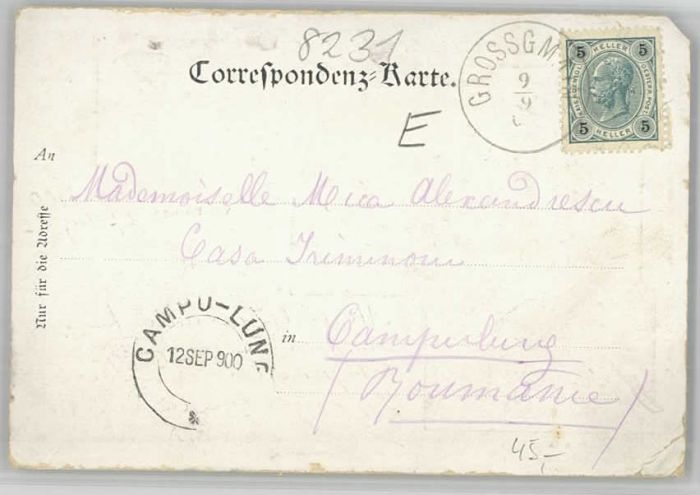 8231
Correspondenz-Karte.
E
GROSSGM
9
9
5 HELLER 5
5 HELLER 5
An
Mademoiselle Mica Alexandrescu
Casa
Nur für die Adresse
CAMPU-LUNG
12SEP 900
in Campulung
(Roumanie)
45,-